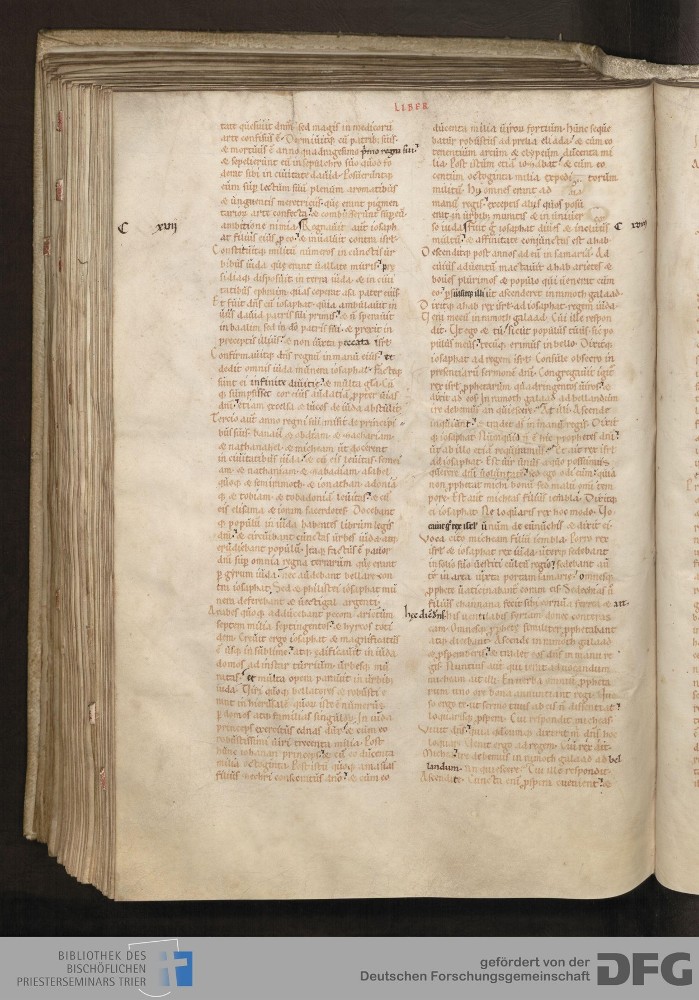 LIBER
tate quesiuit dnm. sed magis in medicoru
arte confisus ē. Dormiuitq; cū patrib; suis.
& mortuus ē anno quadragesimo primo regni sui.
& sepelierunt eū in sepulchro suo quod fo
derat sibi in ciuitate dauid. Posueruntq;
eum sup lectum suū plenum aromatibus
& unguentis meretriciis que erant pigmen
tarioꝝ arte confecta. & combusserunt sup eū
ambitione nimia. Regnauit aut iosaph
C xvii
at filius eius p eo. & inualuit contra isrl.
Constituitq; militū numeros in cunctis ur
bibus iuda que erant uallate muris. p̄
sidiaq; disposuit in terra iuda. & in ciui
tatibus ephraim quas ceperat asa pater eius.
Et fuit dns cū iosaphat. quia ambulauit in
uiis dauid patris sui primis. & ñ sperauit
in baalim sed in dō patris sui. & prexit in
preceptis illius. & non iuxta peccata isrl.
Confirmauitq; dns regnū in manu eius. et
dedit omnis iuda munera iosaphat. Facteq;
sunt ei infinite diuitie. & multa gla. Cū
q; sumpsisset cor eius audatiā ppter uias
dni. etiam excelsa & lucos de iuda abstulit.
Tercio aut anno regni sui misit de principi
bus suis. benail & obdiam. & zachariam.
& nathanahel. & micheam ut docerent
in ciuitatibus iuda. & cū eis leuitas. semei
am. & nathaniam. & zabadiam. asahel
quoq; & semiramoth. & ionathan. adoniā
q; & tobiam. & tobadoniā leuitas. & cū
eis elisama & ioram sacerdotes. Docebant
q; populū in iuda habentes librum legis
dni. & circuibant cunctas urbes iuda. atq;
erudiebant populū. Itaq; factus ē pauor
dni sup omnia regna terrarum que erant
p gyrum iuda. nec audebant bellare con
tra iosaphat. Sed & philistei iosaphat mu
nera deferebant. & uectigal argenti.
Arabes quoq; adducebant pecora. arietum
septem milia septingentos. & hyrcos toti
dem. Creuit ergo iosaphat & magnificatus
ē usq; in sublime. atq; edificauit in iuda
domos ad instar turrium. urbesq; mu
ratas. et multa opera patrauit in urbib;
iuda. Uiri quoq; bellatores & robusti e
rant in hierusale. quoꝝ iste ē numerus
p domos atq; familias singuloꝝ. In iuda
princeps exercitus ednas dux. & cum eo
robustissimi uiri trecenta milia. Post
hunc iohanan princeps. & cū eo ducenta
milia & octoginta. Post istū quoq; amasias
filius zechri consecratus dno. & cum eo
ducenta milia uiroꝝ fortium. Hunc seque
batur robustus ad prelia eliada. & cum eo
tenentium arcum & clypeum ducenta mi
lia. Post istum etiā iozabat. & cum eo
centum octoginta milia expedi torum
militū. Hii omnes erant ad
manū regis. exceptis aliis quos posu
erat in urbib; munitis & in uniuer
so iuda. Fuit g iosaphat diues & inclitus
C xviii
multū. & affinitate coniunctus est ahab.
Descenditq; post annos ad eū in samariā. Ad
cuius aduentū mactauit ahab arietes &
boues plurimos & populo qui uenerat cum
eo. psuasitq; illi ut ascenderet in ramoth galaad.
Dixitq; ahab rex isrl. ad iosaphat regem iuda.
Ueni mecū in ramoth galaad. Cui ille respon
dit. Ut ego & tu. sicut populus tuus. sic po
pulus meus. tecūq; erimus in bello. Dixitq;
iosaphat ad regem isrl. Consule obsecro in
presentiarū sermonē dni. Congregauit igit
rex isrl. pphetarum quadringentos uiros. &
dixit ad eos. In ramoth galaad ad bellandum
ire debemus an quiescere. At illi. Ascende
inquiunt. & tradet ds in manu regis. Dixit
q; iosaphat. Numquid ñ ē hic prophetes dni.
ut ab illo etiā requiramus. Et ait rex isrl.
ad iosaphat. Est uir unus a quo possumus
querere dni uoluntatē. sed ego odi eum. quia
non pphetat michi bonū sed malū omi tem
pore. Est aut micheas filius iembla. Dixitq;
iosaphat. Ne loquaris rex hoc modo. Uo
cauit g rex isrl. unum de eunuchis. & dixit ei.
Uoca cito micheam filiū iembla. Porro rex
isrl. & iosaphat rex iuda. uterq; sedebant
in solio suo uestiti cultu regio. sedebant au
tē in area iuxta portam samarie. omnesq;
pphete uaticinabant coram eis. Sedechias ū
filius chanaana fecit sibi cornua ferrea. & ait.
hec dic dns. his uentilabis syriam donec conteras
eam. Omnesq; pphete similiter pphetabant
atq; dicebant. Ascende in ramoth galaad
& psperaberis. & tradet eos dns in manu re
gis. Nuntius aut qui ierat ad uocandum
micheam ait illi. En uerba omniū ppheta
rum uno ore bona annuntiant regi. Que
so ergo te ut sermo tuus ab eis ñ dissentiat.
loquarisq; pspera. Cui respondit micheas.
Uiuit dns. quia qdcumq; dixerit m dns hoc
loquar. Uenit ergo ad regem. Cui rex ait.
Michea. ire debemus in ramoth galaad ad bel
landum. an quiescere. Cui ille respondit.
Ascendite. Cuncta eni pspera euenient. &
BIBLIOTHEK DES
BISCHÖFLICHEN
PRIESTERSEMINARS TRIER
gefördert von der
Deutschen Forschungsgemeinschaft
DFG